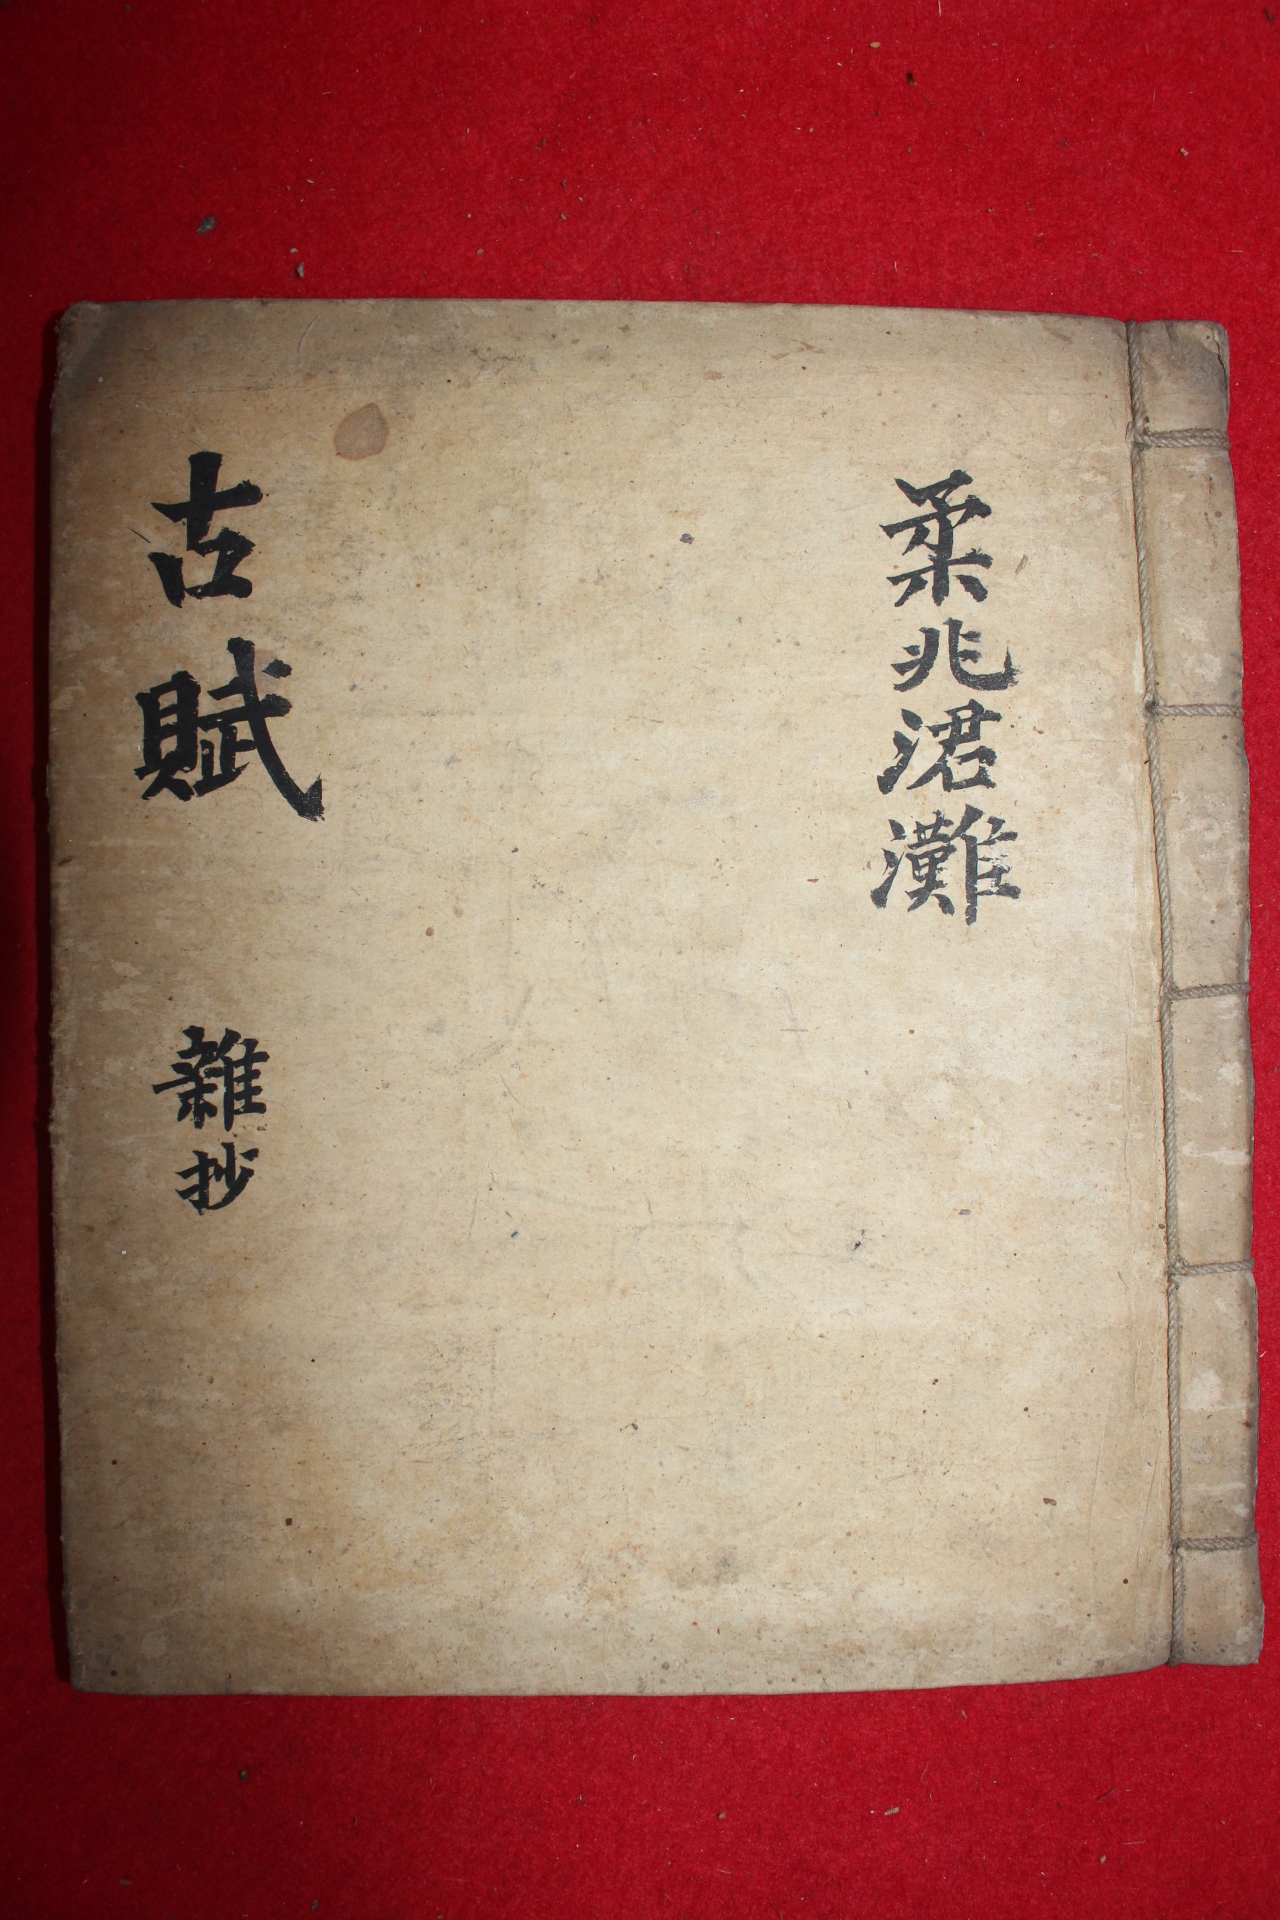 柔兆涒灘
古賦 雜抄